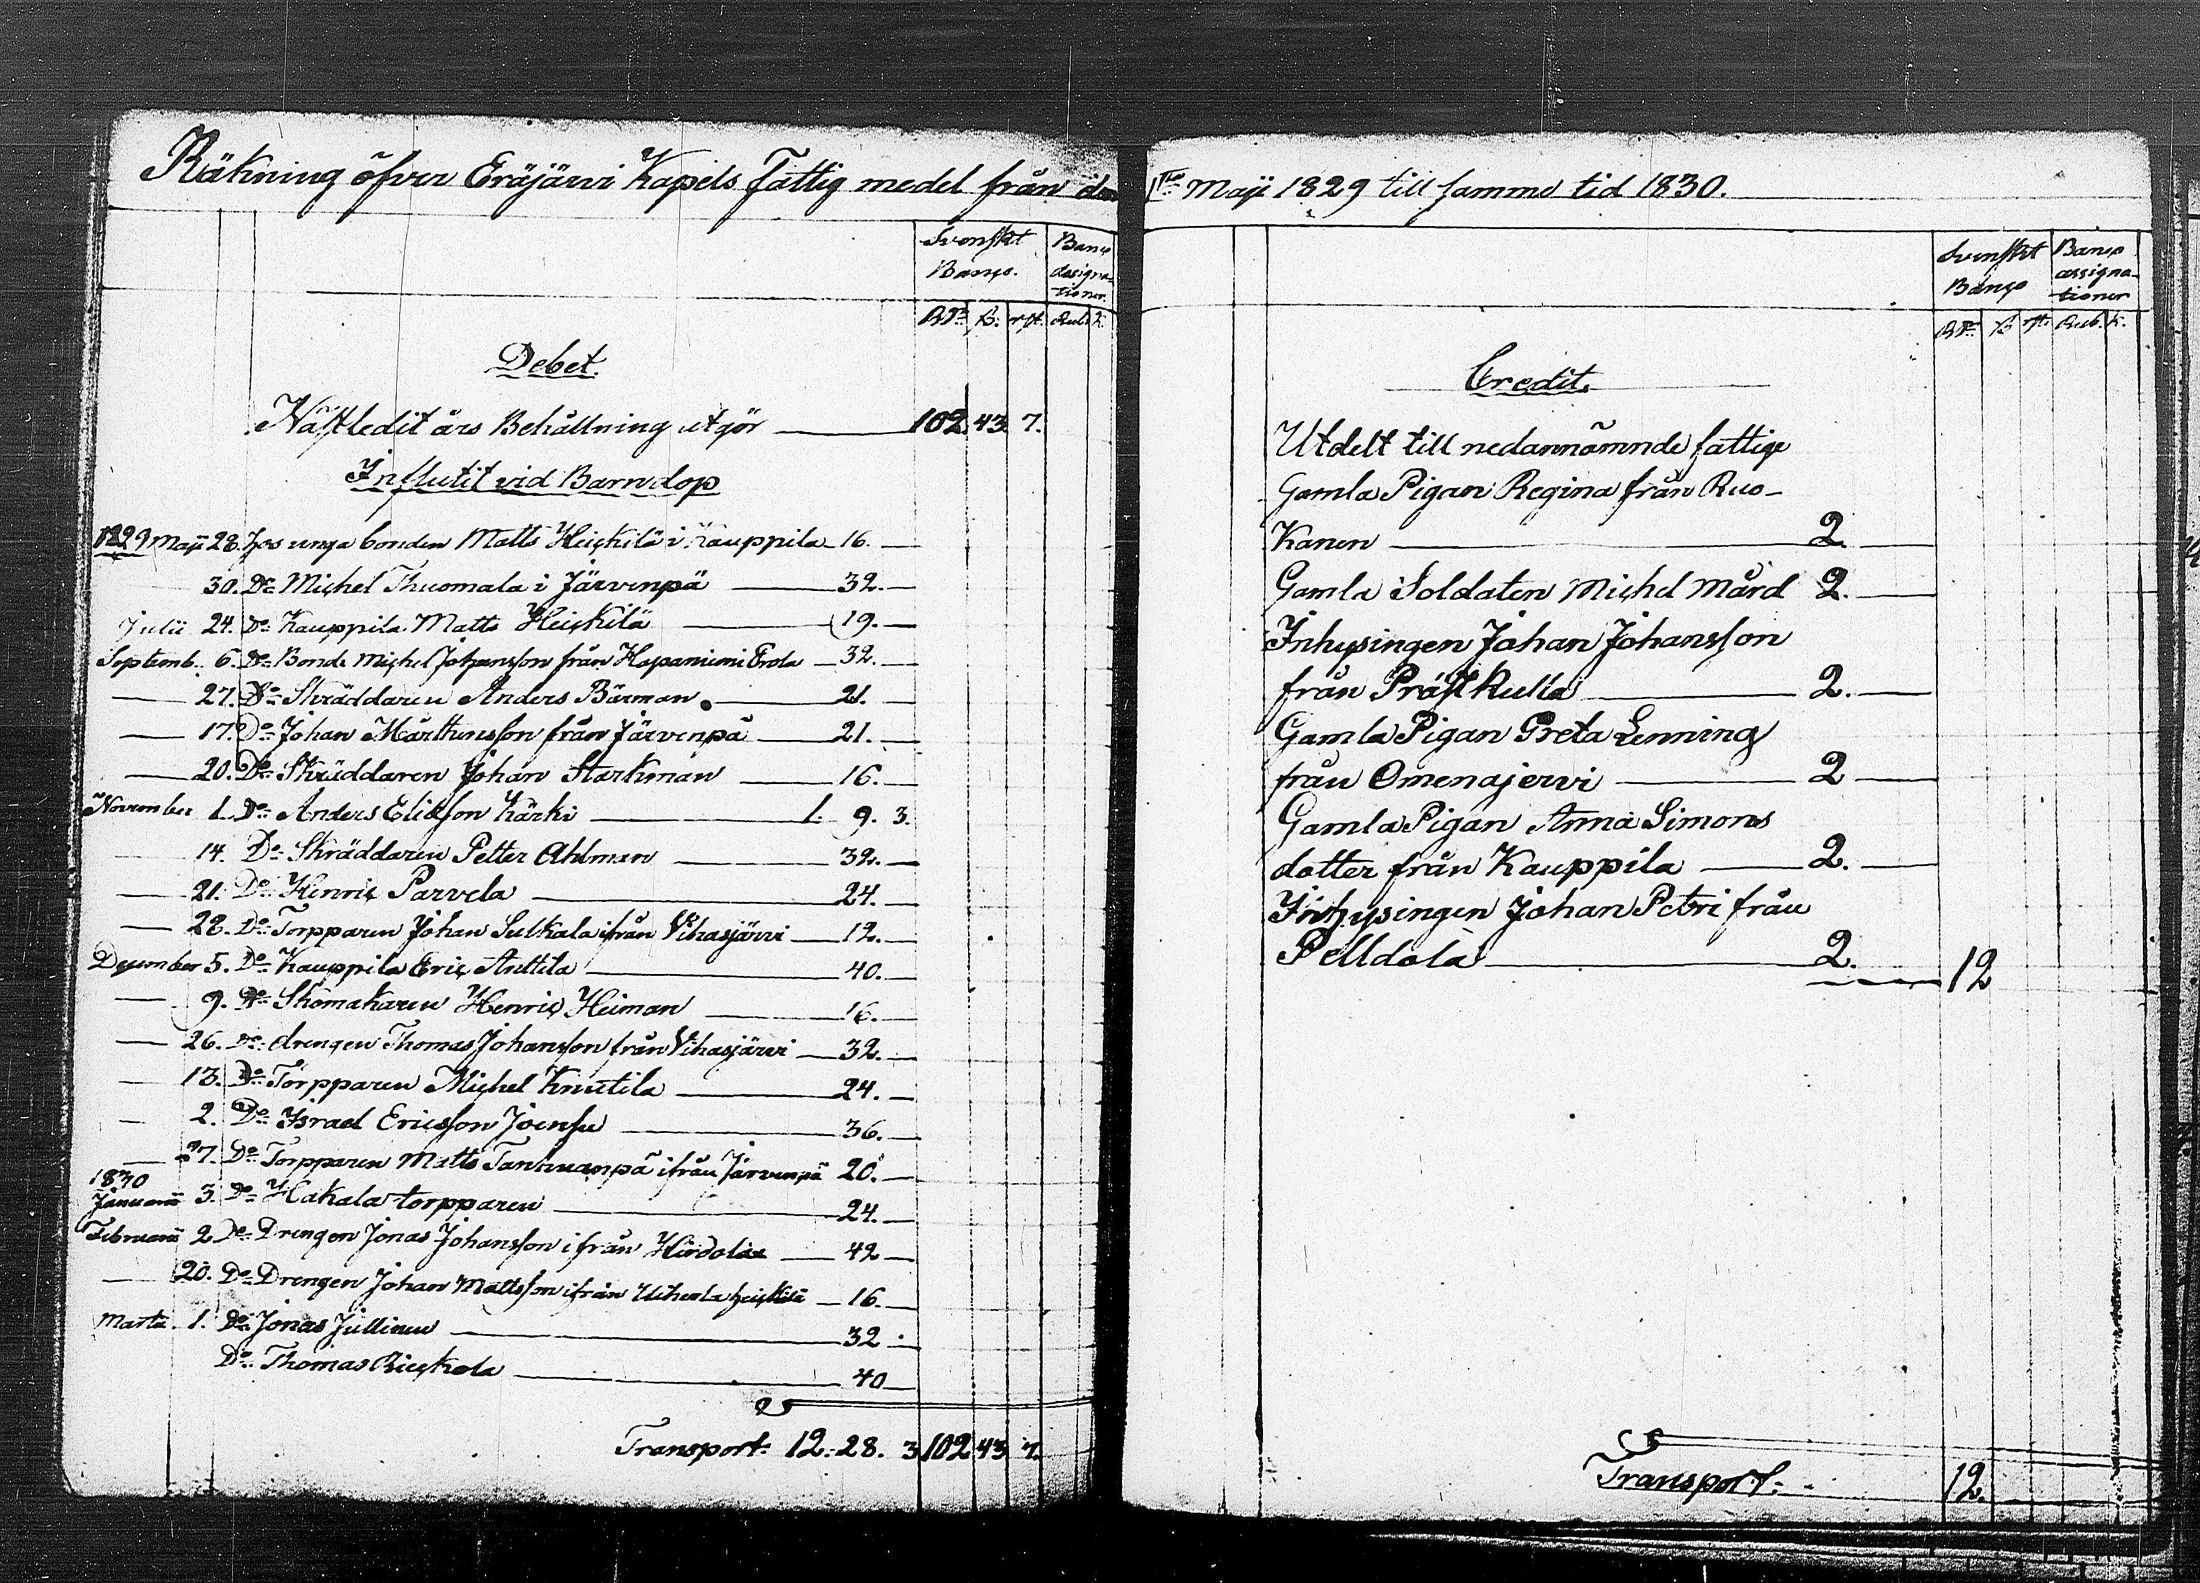 Räkning öfver Eräjärvi Kapels Fattig medel från den
Svenskt Banco. Banco assignationer.
RD. ß. rst. Rub. K.
Debet.
Nästledit års Behållning utgör 102. 43. 7.
Influtit vid Barndop
1829 Maji 28. hos unga bonden Matts Heickilä i Kauppila 16.
30. Do Michel Thuomala i Järvenpä 32.
Julii 24. Do Kauppila Matts Heickilä 19.
Septemb. 6. Do Bonde Michel Johansson från Hapaniemi Erola 32.
27. Do Skräddaren Anders Bärman 21.
17. Do Johan Mårttensson från Järvenpä 21.
20. Do Skräddaren Johan Starkman 16.
November 1. Do Anders Eliasson Kärki 1. 9. 3.
14. Do Skräddaren Petter Ahlman 32.
21. Do Henric Parvela 24.
28. Do Torpparen Johan Sulkala ifrån Vihasjärvi 12.
December 5. Do Kauppila Eric Anttila 40.
9. Do Skomakaren Henric Heiman 16.
26. Do drengen Thomas Johansson från Vihasjärvi 32.
13. Do Torpparen Michel Knutila 24.
2. Do Israel Ericsson Joensu 36.
27. Do Torpparen Matts ifrån Järvenpä 20.
1830
Januarii 3. Do Hakala torpparen 24.
Februarii 2. Do Drengen Jonas Johansson ifrån 42
20. Do Drengen Johan Mattsson ifrån 16.
Martii 1. Do Jonas Jullinen 32.
Do Thomas 40
Transport: 12. 28. 3 102 43 7.
1sta Maji 1829 till samma tid 1830.
Svenskt Banco Banco assignationer
RD. ß rst. Rub. K.
Credit.
Utdelt till nedannämnde fattige
Gamla Pigan Regina från Ruo-
kanen 2.
Gamla Soldaten Michel Mård 2.
Inhysingen Johan Johansson
från Prästkulla 2.
Gamla Pigan Greta Lenning
från Omenajervi 2
Gamla Pigan Anna Simons
dotter från Kauppila 2.
Inhysingen Johan Petri från
Pelldola 2. 12
Transport: 12.